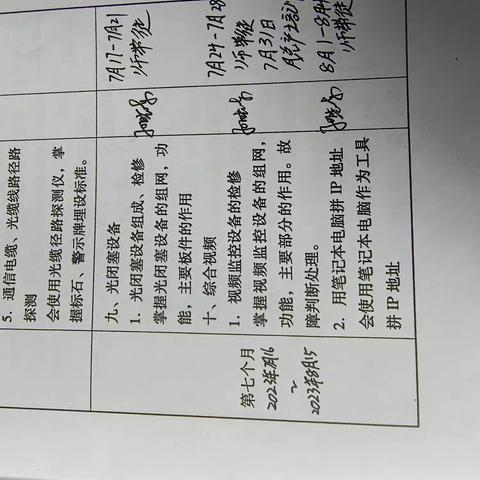 5. 通信电缆、光缆线路径路
探测
会使用光缆径路探测仪，掌
握标石、警示牌埋设标准。
第七个月
2023年7月16
~
2023年8月15
九、光闭塞设备
1. 光闭塞设备组成、检修
掌握光闭塞设备的组网，功
能，主要板件的作用
十、综合视频
1. 视频监控设备的检修
掌握视频监控设备的组网，
功能，主要部分的作用。故
障判断处理。
2. 用笔记本电脑拼 IP 地址
会使用笔记本电脑作为工具
拼 IP 地址
7月17-7月21
师带徒
7月24-7月28
师带徒
7月31日
8月1-8月4
师带徒